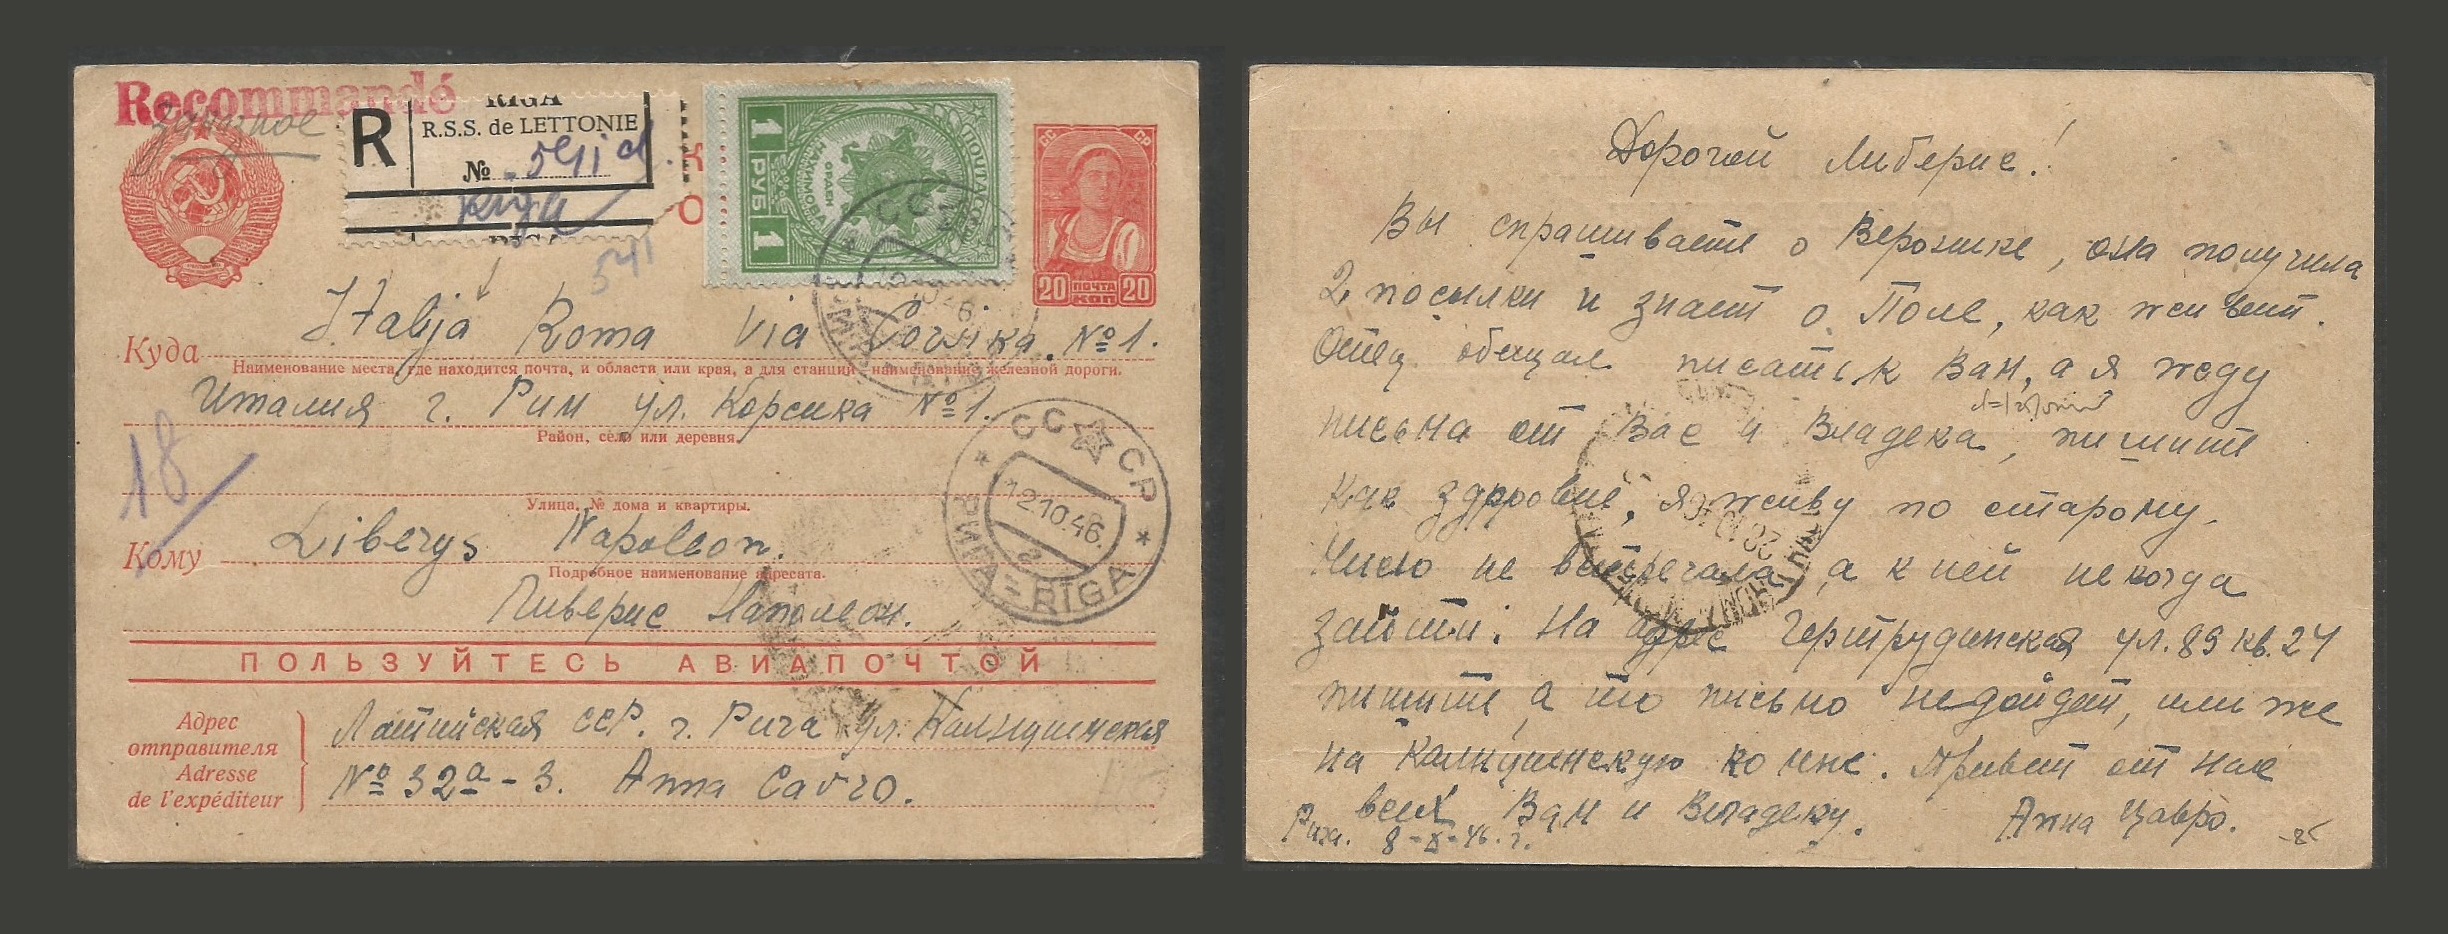 Recommandé
Заказное
RIGA
R
R.S.S. de LETTONIE
№ 541
Riga
541
ПОЧТА СССР
ОРДЕН НАХИМОВА
1 РУБ 1
СС СР
20 ПОЧТА КОП 20
Italija Roma Via Corsika. № 1.
Куда
Наименование места, где находится почта, и области или края, а для станций наименование железной дороги.
Италия г. Рим ул. Корсика № 1.
Район, село или деревня.
18
Улица, № дома и квартиры.
СССР
12.10.46.
РИГА = RIGA
Кому Liberys Napoleon.
Подробное наименование адресата.
Либерис Наполеон.
ПОЛЬЗУЙТЕСЬ АВИАПОЧТОЙ
Адрес отправителя
Adresse de l'expéditeur
Латвийская ССР. г. Рига ул. Калнциемская
№ 32а - 3. Anna Cavro.
Дорогой Либерис!
Вы спрашиваете о Верониke, она получила
2 посылки и знает о Поле, как живет.
Отец обещал писать к Вам, а я жду
письма от Вас и Владека, пишите
как здоровие, я живу по старому.
не встречала, а к ней некогда
зайти. На адрес Гертрудинская ул. 89 кв. 24
пишите, а то письмо не дойдет, или же
на Калнциемскую ко мне. Привет от нас
всех Вам и Владеку. Анна Цавро.
Рига. 8-X-46. г.